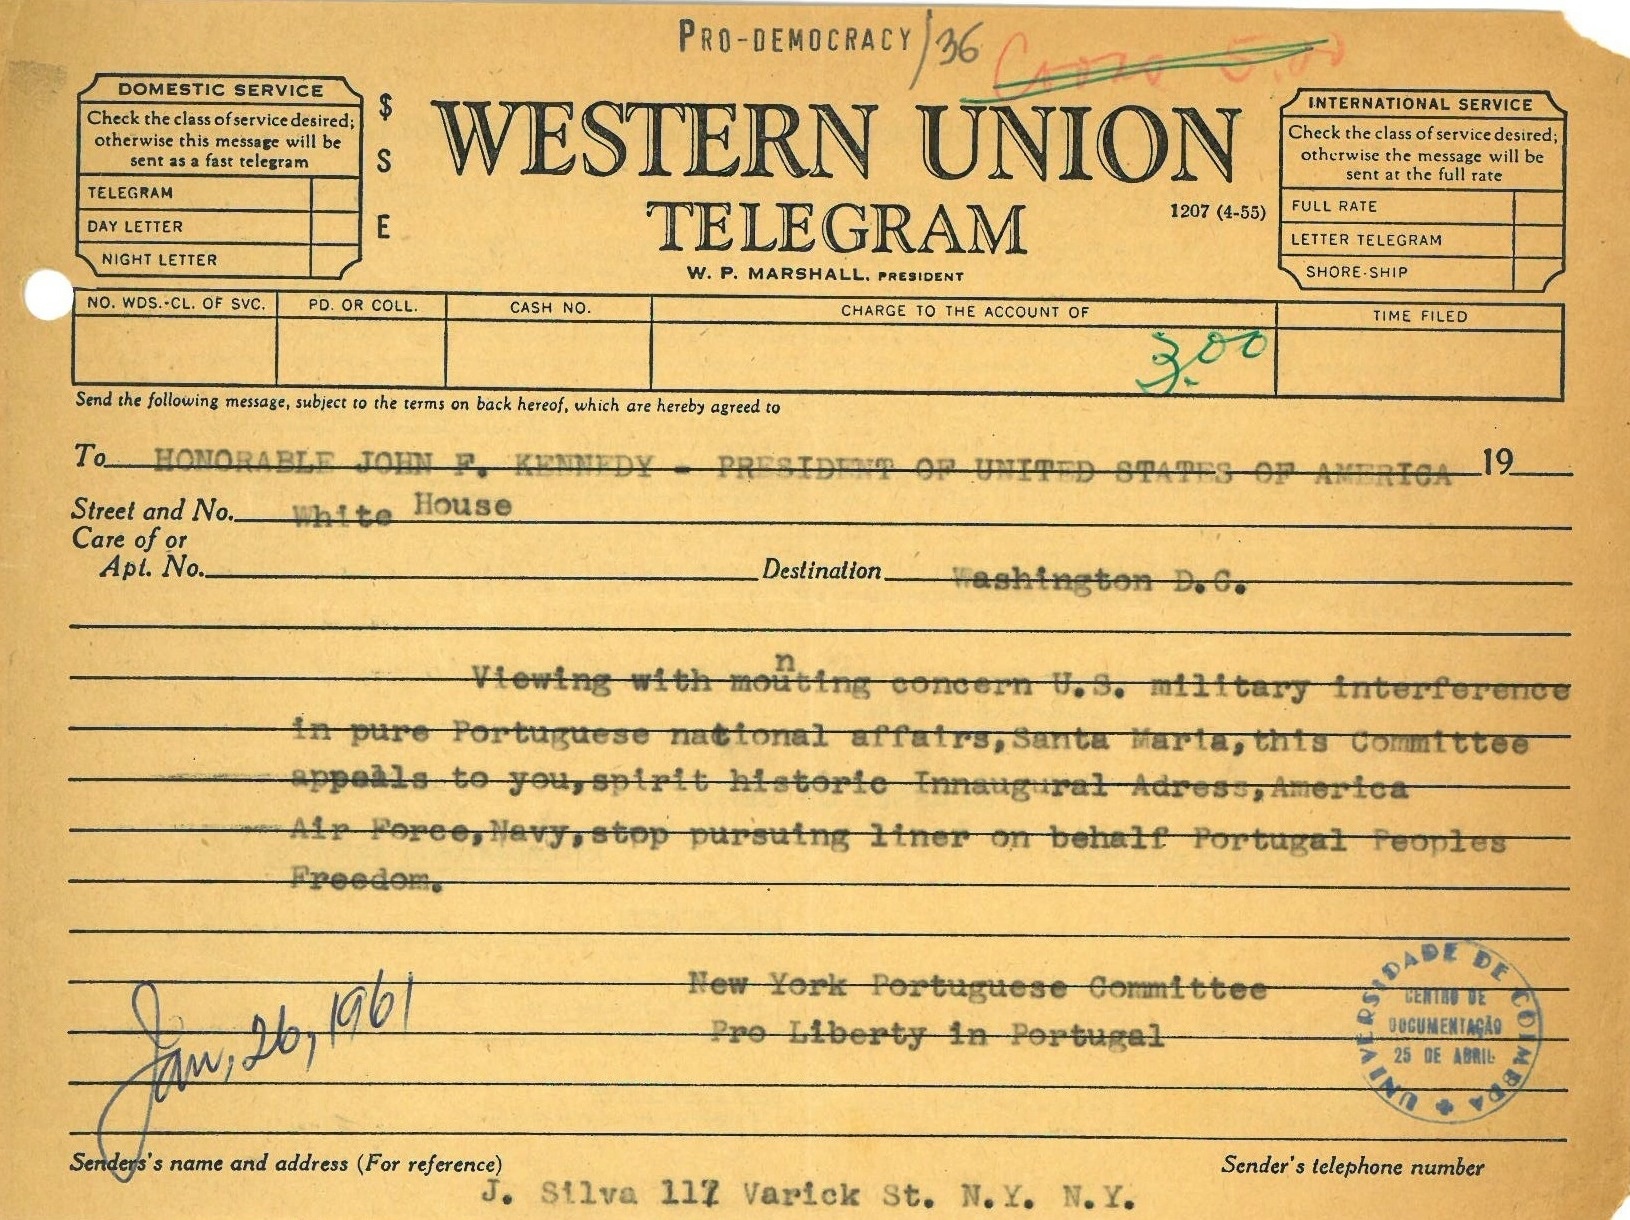 PRO-DEMOCRACY/36
5.00
DOMESTIC SERVICE
Check the class of service desired;
otherwise this message will be
sent as a fast telegram
TELEGRAM
DAY LETTER
NIGHT LETTER
$
S
E
WESTERN UNION
TELEGRAM
1207 (4-55)
W. P. MARSHALL, PRESIDENT
INTERNATIONAL SERVICE
Check the class of service desired;
otherwise the message will be
sent at the full rate
FULL RATE
LETTER TELEGRAM
SHORE-SHIP
NO. WDS.-CL. OF SVC.
PD. OR COLL.
CASH NO.
CHARGE TO THE ACCOUNT OF
TIME FILED
3.00
Send the following message, subject to the terms on back hereof, which are hereby agreed to
To HONORABLE JOHN F. KENNEDY - PRESIDENT OF UNITED STATES OF AMERICA 19
Street and No. White House
Care of or
Apt. No. Destination Washington D.C.
Viewing with mounting concern U.S. military interference
in pure Portuguese national affairs,Santa Maria,this Committee
appeals to you,spirit historic Innaugural Adress,America
Air Force,Navy,stop pursuing liner on behalf Portugal Peoples
Freedom.
New York Portuguese Committee
Pro Liberty in Portugal
Jan, 26, 1961
UNIVERSIDADE DE COIMBRA
CENTRO DE
DOCUMENTAÇÃO
25 DE ABRIL
Senders's name and address (For reference)
Sender's telephone number
J. Silva 117 Varick St. N.Y. N.Y.